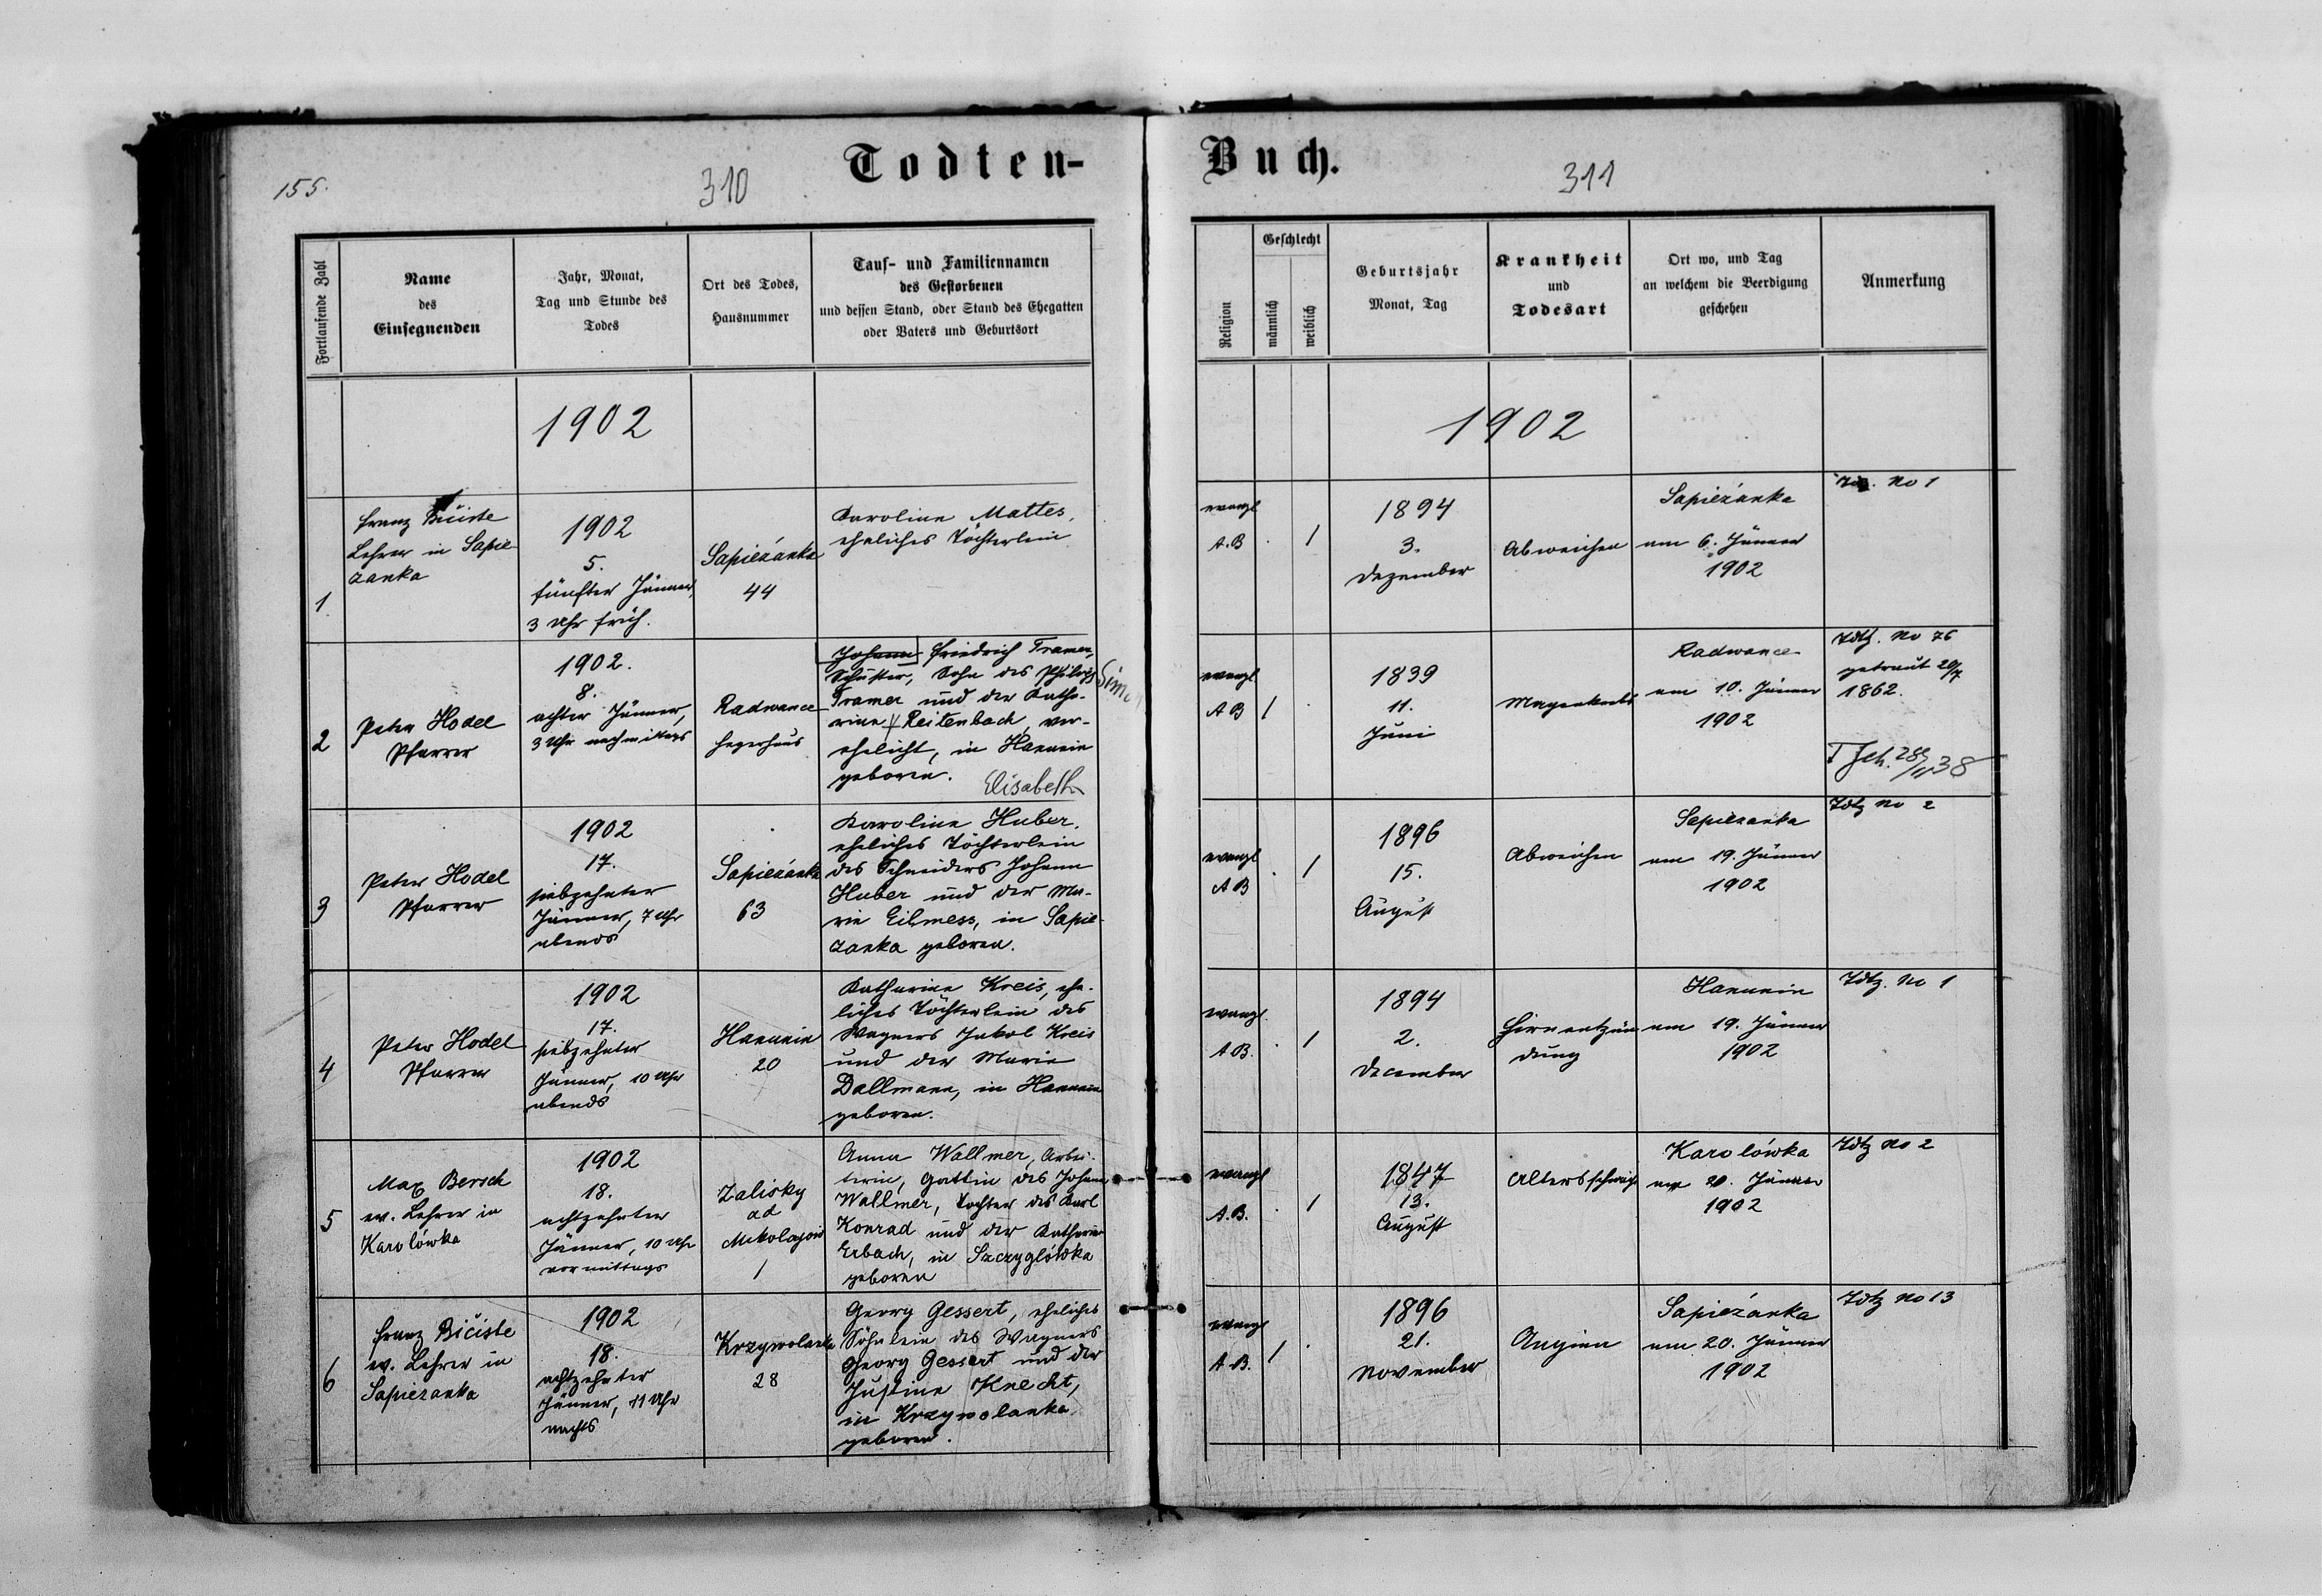 155.
310
Todten-
Fortlaufende Zahl
Name
des
Einsegnenden
Jahr, Monat,
Tag und Stunde des
Todes
Ort des Todes,
Hausnummer
Tauf- und Familiennamen
des Gestorbenen
und dessen Stand, oder Stand des Ehegatten
oder Vaters und Geburtsort
1902
1
Franz Bičiste
Lehrer in Sapie-
zanka
1902
5.
fünfter Jänner,
3 Uhr früh.
Sapieżanka
44
Karoline Mattes,
eheliches Töchterlein
2
Peter Hodel
Pfarrer
1902.
8.
achter Jänner,
3 Uhr nachmittags
Radwance
Hegerhaus
Johann Friedrich Tramer,
Schuster, Sohn des Philips
Simon
Tramer und der Katha-
rine Reitenbach, ver-
ehelicht, in Hanunin
geboren.
Elisabeth
3
Peter Hodel
Pfarrer
1902
17.
siebzehnter
Jänner, 7 Uhr
abends
Sapieżanka
63
Karoline Huber,
eheliches Töchterlein
des Schneiders Johann
Huber und der Ma-
rie Eilmess, in Sapie-
zanka geboren.
4
Peter Hodel
Pfarrer
1902
17.
siebzehnter
Jänner, 10 Uhr
abends
Hanunin
20
Katharina Kreis, ehe-
liches Töchterlein des
Wagners Jakob Kreis
und der Marie
Dallmann, in Hanunin
geboren.
5
Max Bersch
ev. Lehrer in
Karolówka
1902
18.
achtzehnter
Jänner, 10 Uhr
vormittags
Zalisky
ad
Mikolajow
1
Anna Wallmer, Arbei-
terin, Gattin des Johann
Wallmer, Tochter des Karl
Konrad und der Katharine
Erbach, in Szczyglówka
geboren
6
Franz Bičiste
ev. Lehrer in
Sapiezanka
1902
18.
achtzehnter
Jänner, 11 Uhr
nachts
Krzywolanka
28
Georg Gessert, eheliches
Söhnlein des Wagners
Georg Gessert und der
Justine Knecht,
in Krzywolanka
geboren.
Buch.
311
Religion
Geschlecht
männlich
weiblich
Geburtsjahr
Monat, Tag
Krankheit
und
Todesart
Ort wo, und Tag
an welchem die Beerdigung
geschehen
Anmerkung
1902
evangl
A.B
1
1894
3.
Dezember
Abweichen
Sapieżanka
am 6. Jänner
1902
No 1
evangl
AB
1
1839
11.
Juni
Magenkrebs
Radwance
am 10. Jänner
1902
Tdtz. No 76
getraut 20/7
1862.
evangl
AB
1
1896
15.
August
Abweichen
Sapiezanka
am 19. Jänner
1902
Tdtz No 2
evangl.
AB.
1
1894
2.
December
Hirnentzün
dung
Hanunin
am 19. Jänner
1902
Tdtz. No 1
evangl
A.B.
1
1847
13.
August
Altersschwäche
Karolówka
am 20. Jänner
1902
Tdtz No 2
evangl
A.B.
1
1896
21.
November
Angina
Sapieżanka
am 20. Jänner
1902
Tdtz No 13